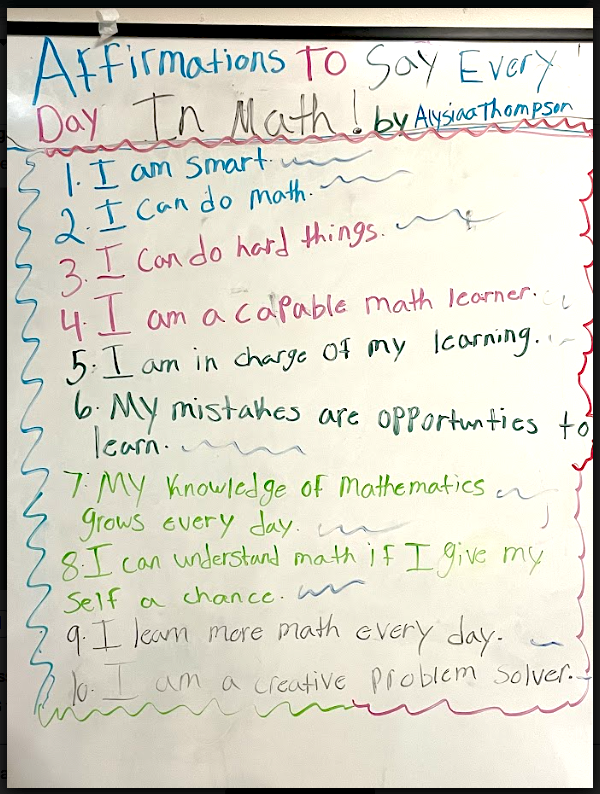 Affirmations To Say Every
Day In Math! by Alysiaa Thompson
1. I am smart.
2. I can do math.
3. I can do hard things.
4. I am a capable math learner.
5. I am in charge of my learning.
6. My mistakes are opportunties to
learn.
7. My knowledge of mathematics
grows every day.
8. I can understand math if I give my
self a chance.
9. I learn more math every day.
10. I am a creative problem solver.